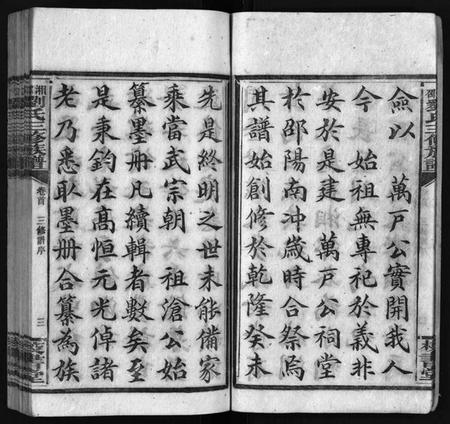 僉以　萬戶公實開我入
今　始祖無專祀於義非
安於是建　萬戶公祠堂
於邵陽南沖歲時合祭焉
其譜始創修於乾隆癸未
先是終明之世未能備家
乘當武宗朝　祖滄公始
纂墨冊凡續輯者數矣至
是秉鈞在高恒元光倬諸
老乃悉取墨冊合纂為族
劉氏三修族譜
卷首　三修譜序　三